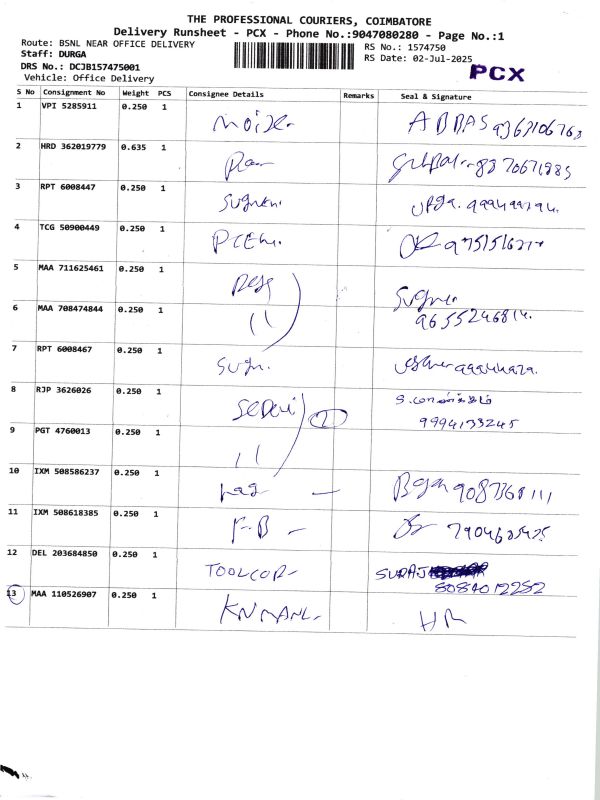 THE PROFESSIONAL COURIERS, COIMBATORE
Delivery Runsheet - PCX - Phone No.:9047080280 - Page No.:1
Route: BSNL NEAR OFFICE DELIVERY
RS No.: 1574750
Staff: DURGA
RS Date: 02-Jul-2025
DRS No.: DCJB157475001
PCX
Vehicle: Office Delivery
S No Consignment No Weight PCS Consignee Details Remarks Seal & Signature
1 VPI 5285911 0.250 1 ABBAS 9363106763
2 HRD 362019779 0.635 1
3 RPT 6008447 0.250 1
4 TCG 50900449 0.250 1
5 MAA 711625461 0.250 1
6 MAA 708474844 0.250 1 " 9655246814.
7 RPT 6008467 0.250 1
8 RJP 3626026 0.250 1
2 9994133245
9 PGT 4760013 0.250 1 "
10 IXM 508586237 0.250 1 - 9087368111
11 IXM 508618385 0.250 1 F-B - 7904625425
12 DEL 203684850 0.250 1 TOOLCOR- SURAJ
8084012252
13 MAA 110526907 0.250 1 KNMANL. HR